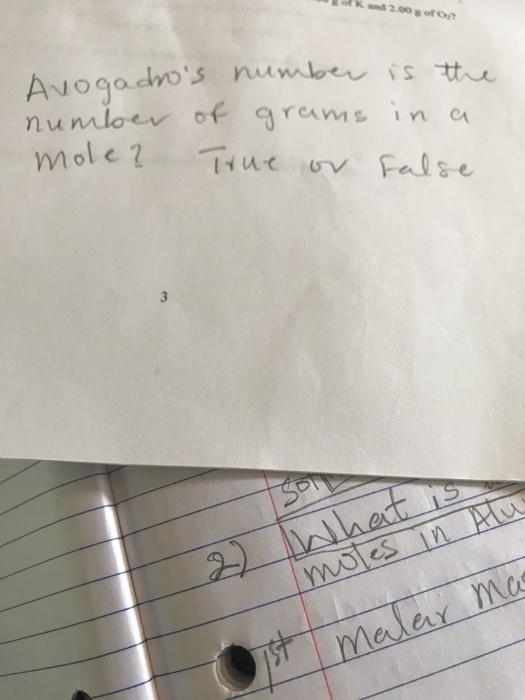 of K and 2.00 g of O₂?
Avogadro's number is the
number of grams in a
mole? True or False
3
2) What is
moles in Alu
1st malar ma